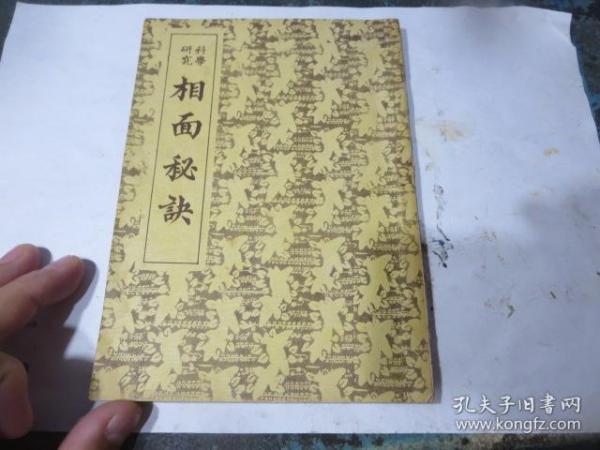 科學
研究
相面秘訣
孔夫子旧書网
www.kongfz.com